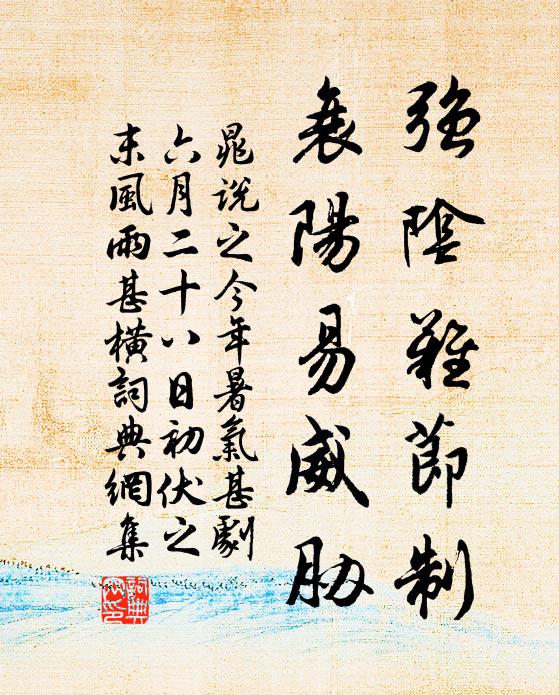 強陰難節制
衰陽易威胁
晁說之今年暑氣甚劇
六月二十八日初伏之
末風雨甚橫詞典網集